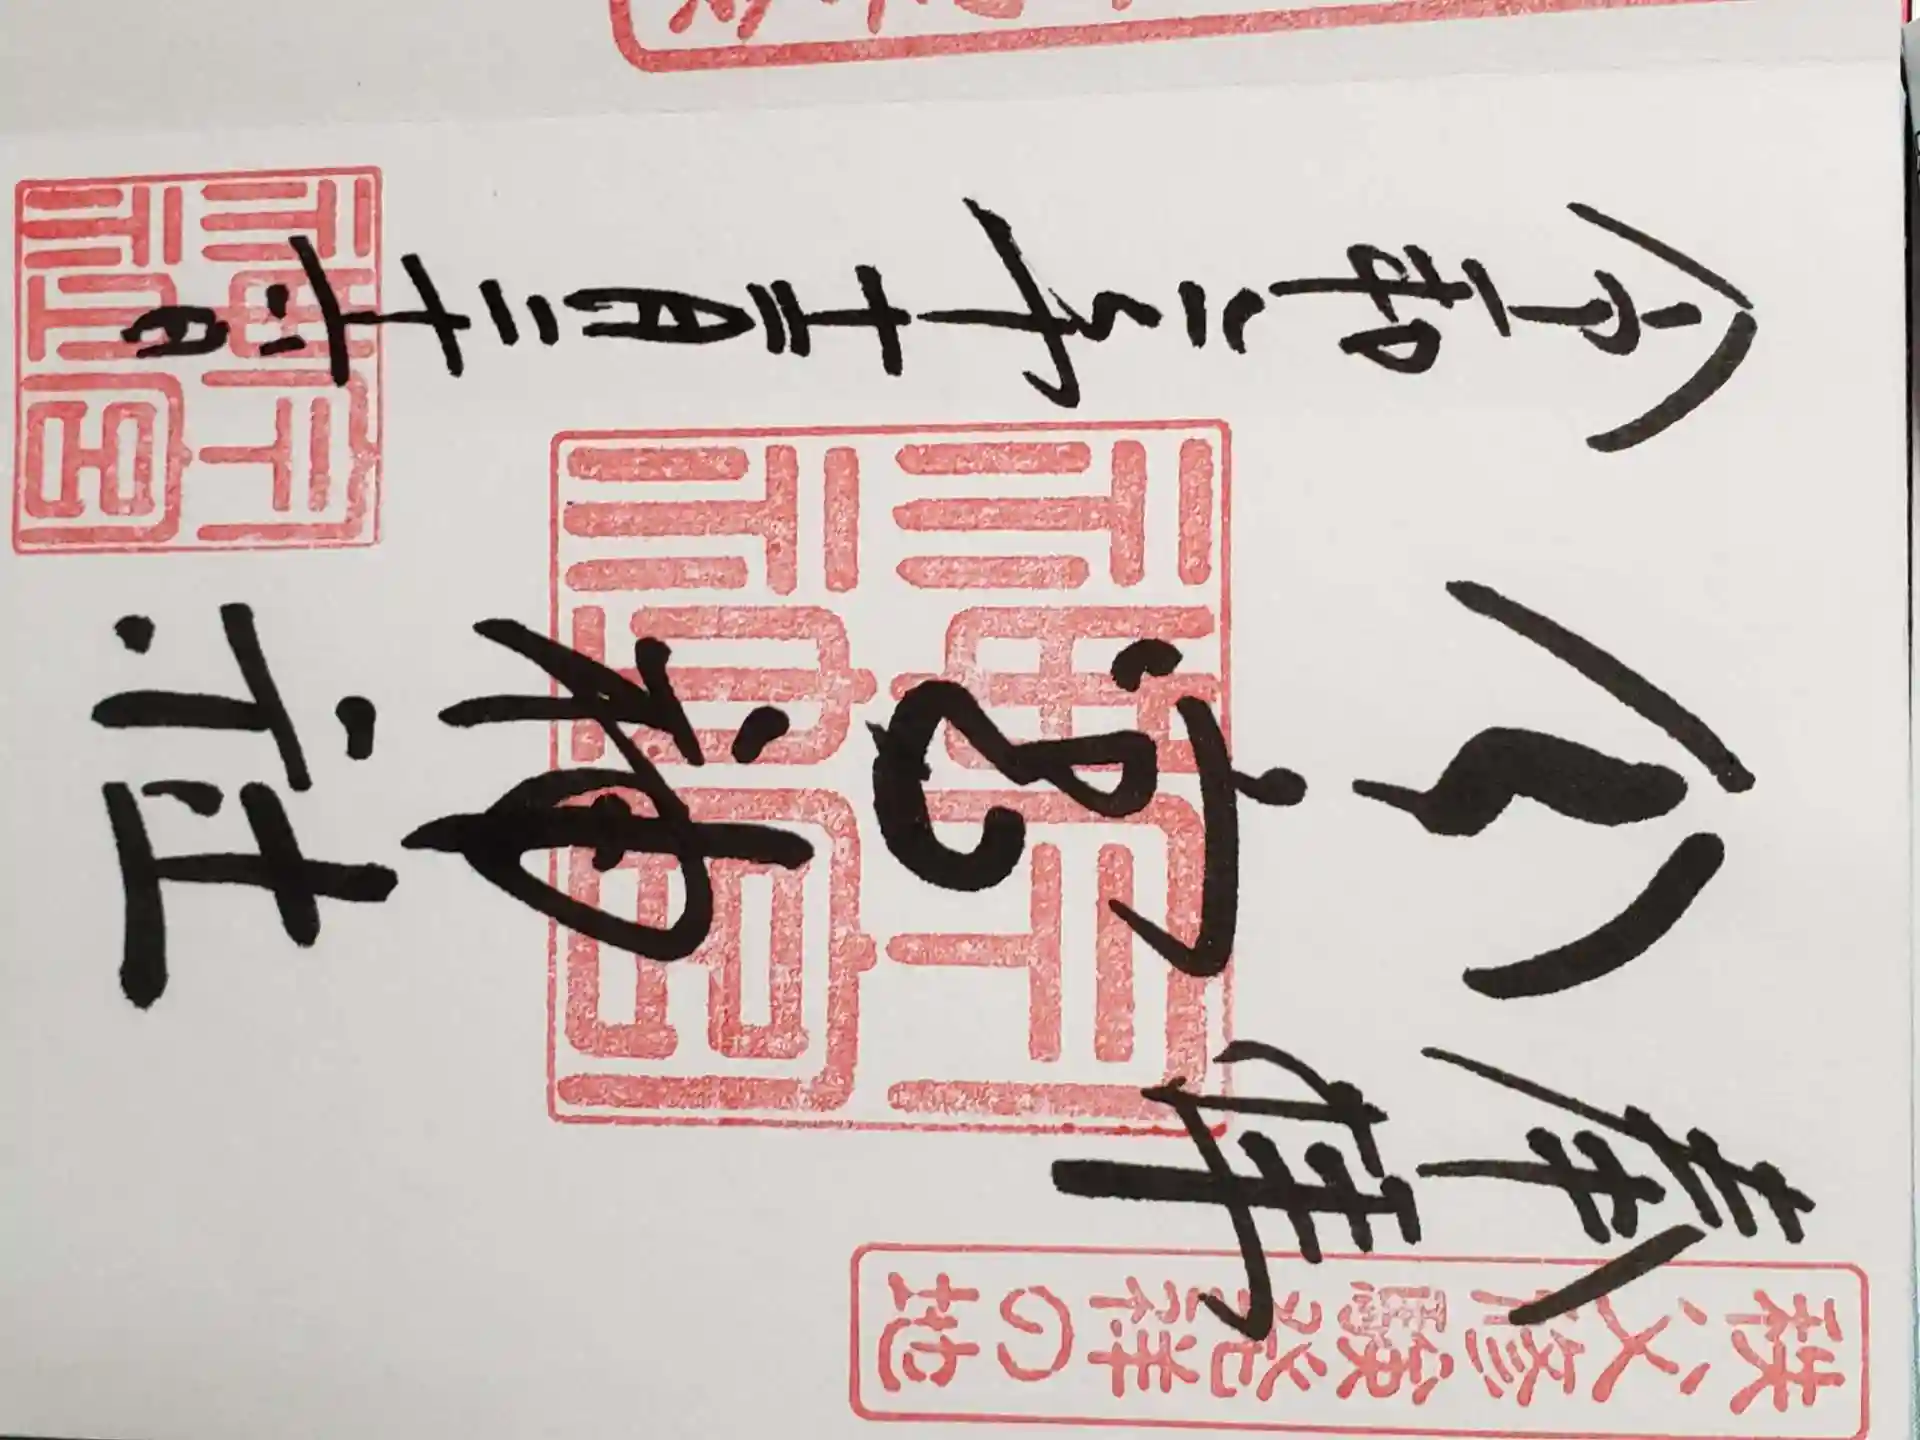 奉拝
秩父修験発祥の地
今宮神社
令和二年十二月二十六日